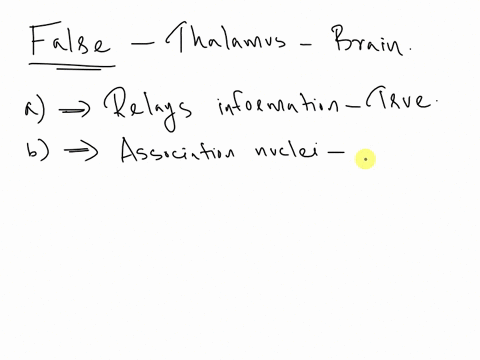 False - Thalamus - Brain.
a) ⇒ Relays information - True.
b) ⇒ Association nuclei -